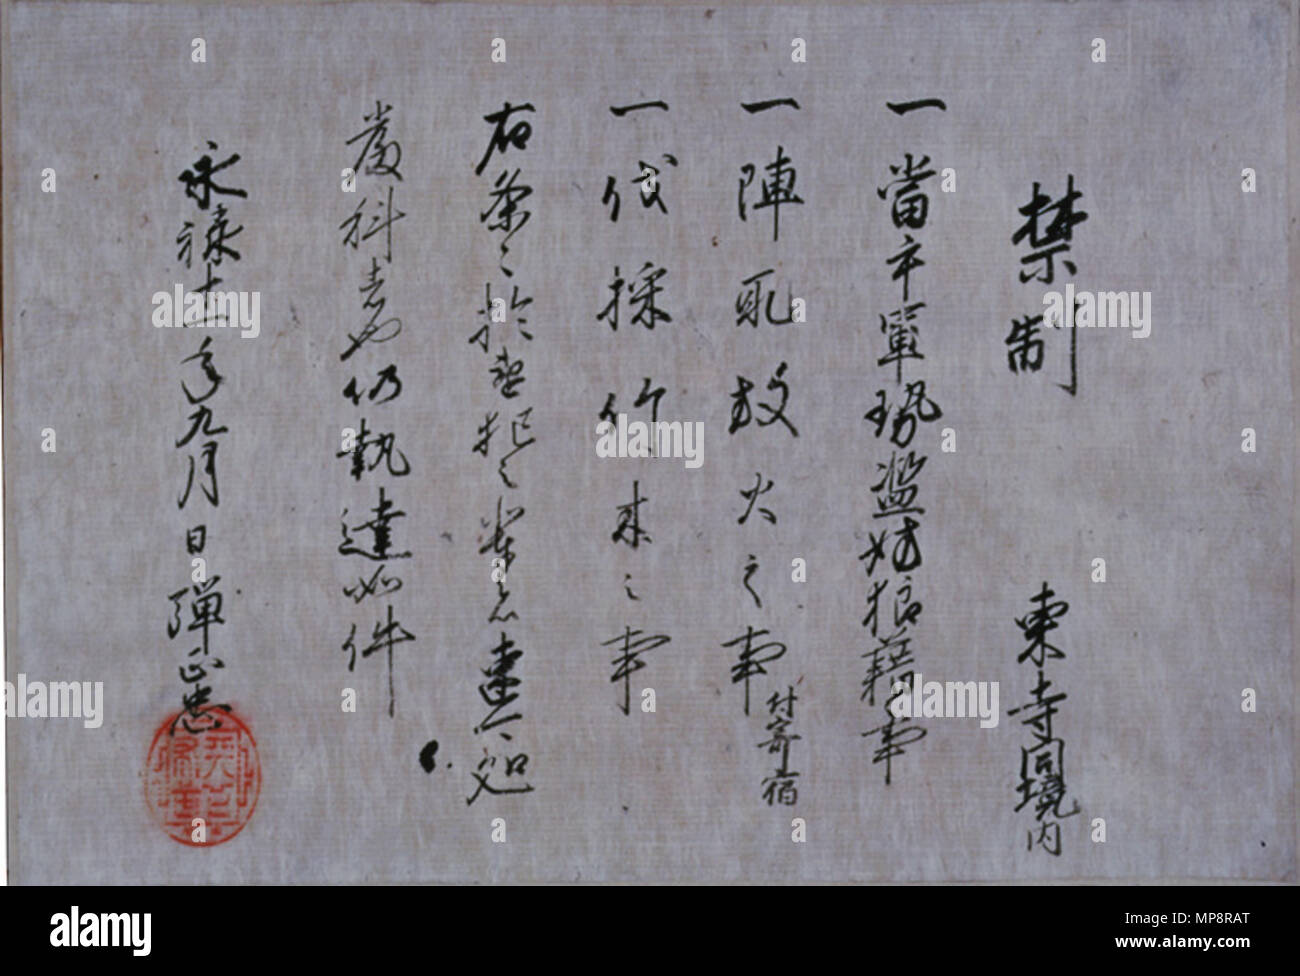 禁制　東寺同境内
一當手軍勢濫妨狼藉事
一陣取放火之事付寄宿
一伐採竹木之事
右条々於違犯之輩者速可処
厳科者也仍執達如件
永禄十一年九月日　弾正忠
a alamy
alamy
Image ID: MP8RAT
www.alamy.com